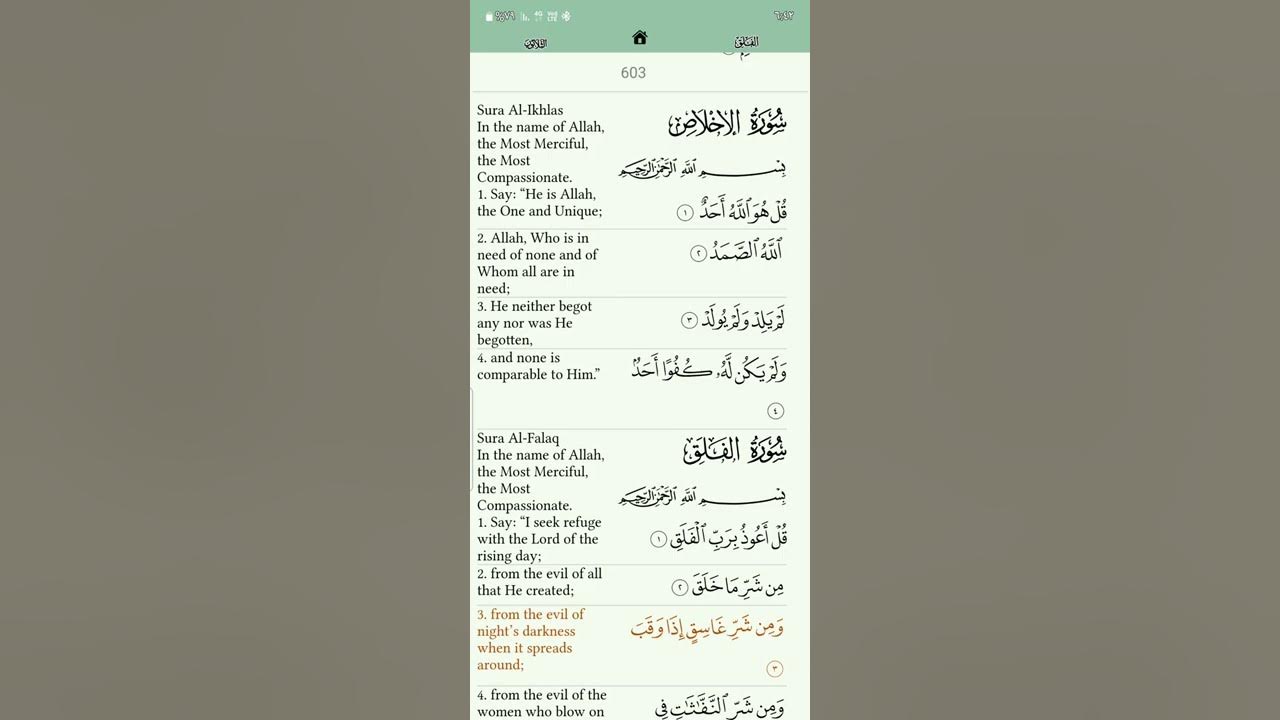 %٧٩ 4G VoD LTE ٦:٤٢
الثلاثون الفلق
603
Sura Al-Ikhlas
In the name of Allah,
the Most Merciful,
the Most
Compassionate.
سُورَةُ الإِخْلَاصِ
بِسْمِ ٱللَّهِ ٱلرَّحْمَٰنِ ٱلرَّحِيمِ
1. Say: “He is Allah,
the One and Unique;
قُلْ هُوَ ٱللَّهُ أَحَدٌ ١
2. Allah, Who is in
need of none and of
Whom all are in
need;
ٱللَّهُ ٱلصَّمَدُ ٢
3. He neither begot
any nor was He
begotten,
لَمْ يَلِدْ وَلَمْ يُولَدْ ٣
4. and none is
comparable to Him.”
وَلَمْ يَكُن لَّهُۥ كُفُوًا أَحَدٌۢ
٤
Sura Al-Falaq
In the name of Allah,
the Most Merciful,
the Most
Compassionate.
سُورَةُ الفَلَقِ
بِسْمِ ٱللَّهِ ٱلرَّحْمَٰنِ ٱلرَّحِيمِ
1. Say: “I seek refuge
with the Lord of the
rising day;
قُلْ أَعُوذُ بِرَبِّ ٱلْفَلَقِ ١
2. from the evil of all
that He created;
مِن شَرِّ مَا خَلَقَ ٢
3. from the evil of
night’s darkness
when it spreads
around;
وَمِن شَرِّ غَاسِقٍ إِذَا وَقَبَ
٣
4. from the evil of the
women who blow on
وَمِن شَرِّ ٱلنَّفَّٰثَٰتِ فِى